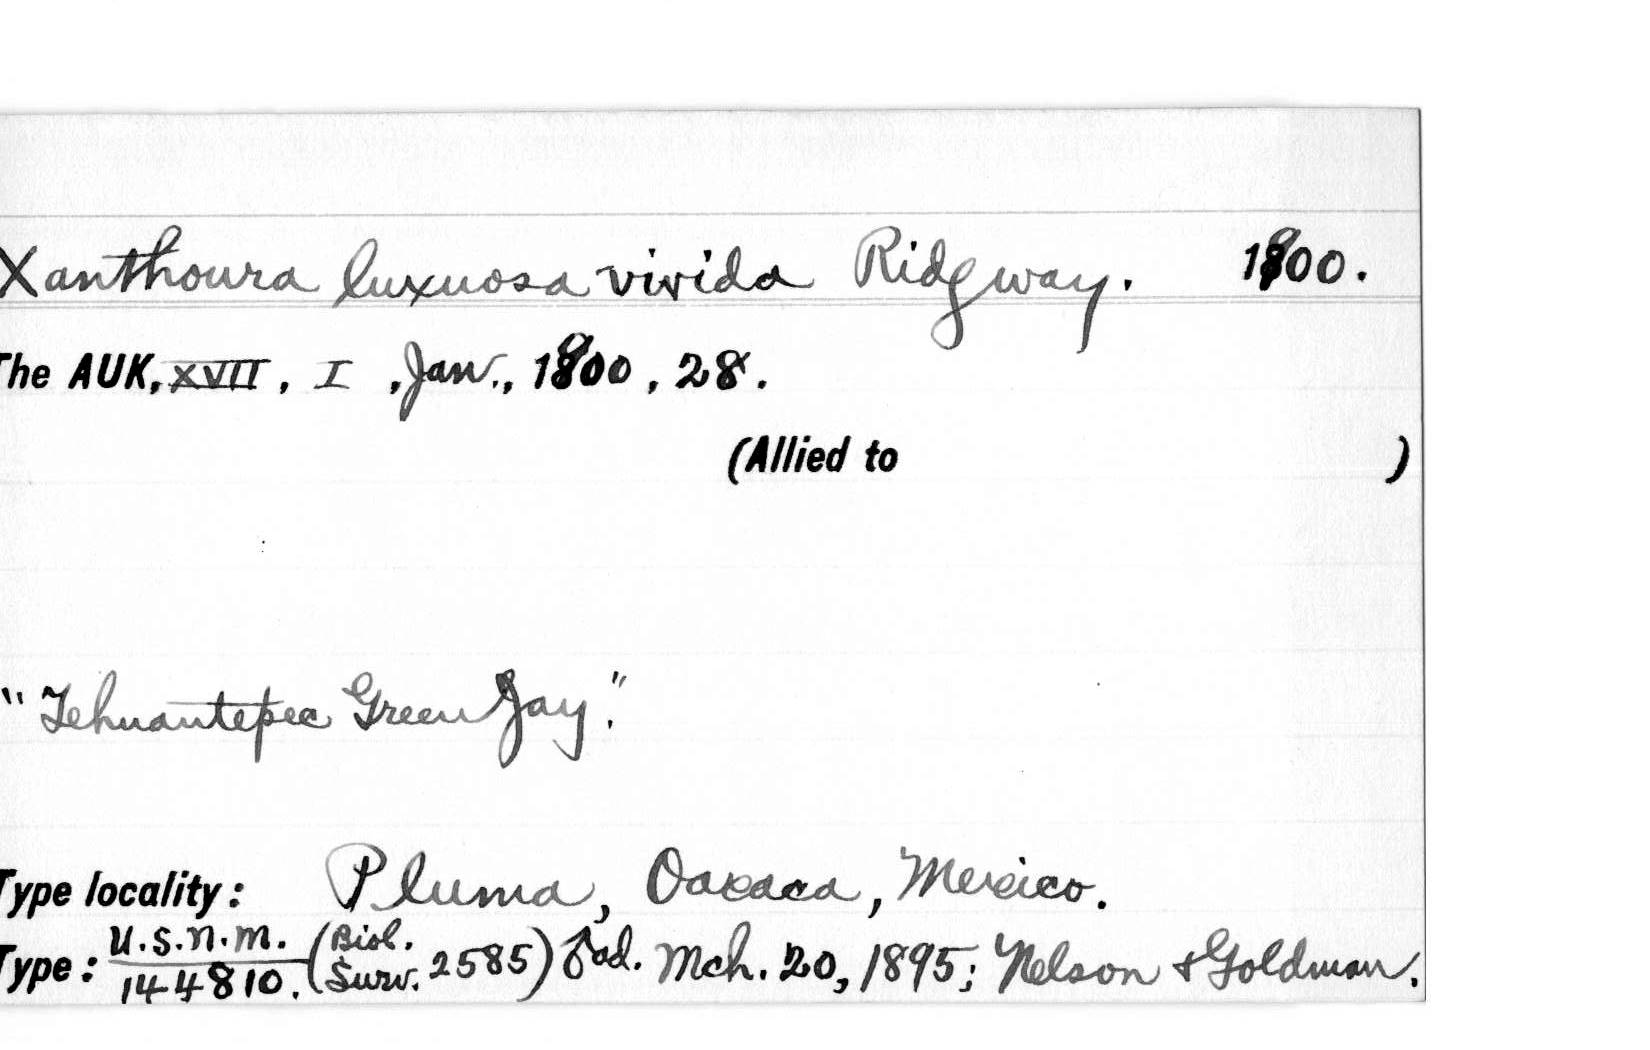 Xanthoura luxuosa vivida Ridgway. 1900.
The AUK, XVII, I, Jan., 1900, 28.
(Allied to )
"Tehuantepec Green Jay."
Type locality: Pluma, Oaxaca, Mexico.
Type: U.S.N.M. 144810. (Biol. Surv. 2585) ♂ ad. Mch. 20, 1895; Nelson & Goldman.